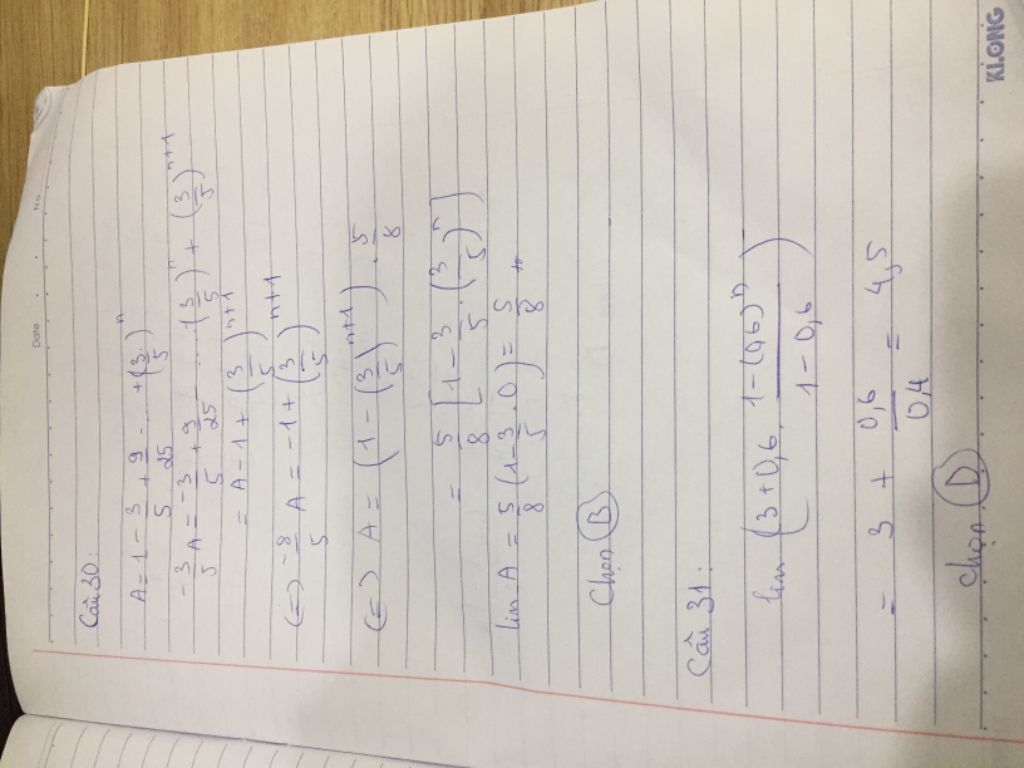 Date No
Câu 30:
A = 1 - 3/5 + 9/25 ... + (3/5)^n
-3/5 A = -3/5 + 9/25 ... (3/5)^n + (3/5)^{n+1}
= A - 1 + (3/5)^{n+1}
(=) -8/5 A = -1 + (3/5)^{n+1}
(=) A = (1 - (3/5)^{n+1}) . 5/8
= 5/8 [1 - 3/5 . (3/5)^n]
lim A = 5/8 (1 - 3/5 . 0) = 5/8
Chọn B
Câu 31:
lim (3 + 0,6 . (1 - (0,6)^n)/(1 - 0,6))
= 3 + 0,6/0,4 = 4,5
Chọn D
KLONG